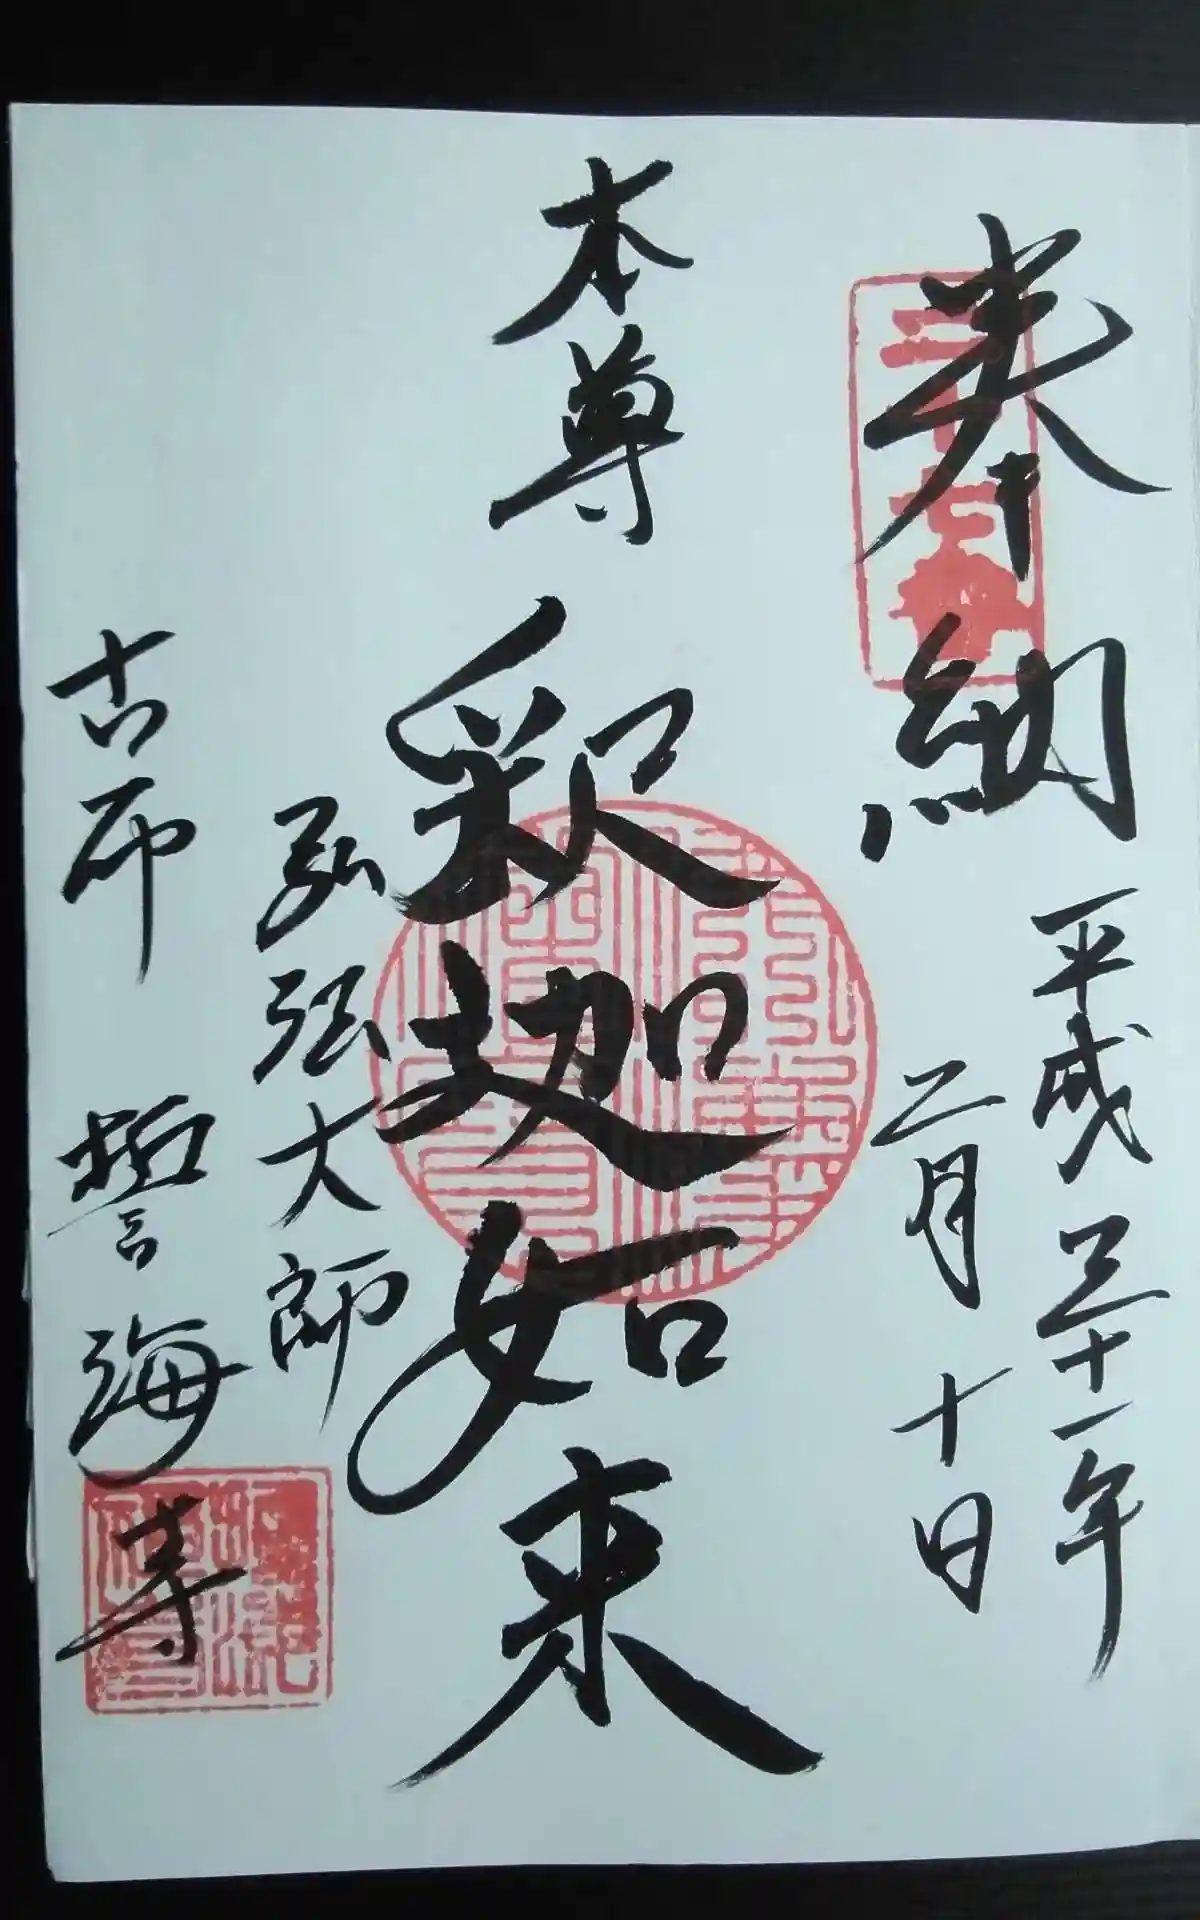 奉納 平成三十一年
二月十日
二十七番
本尊 釈迦如来
弘法大師
古布 誓海寺